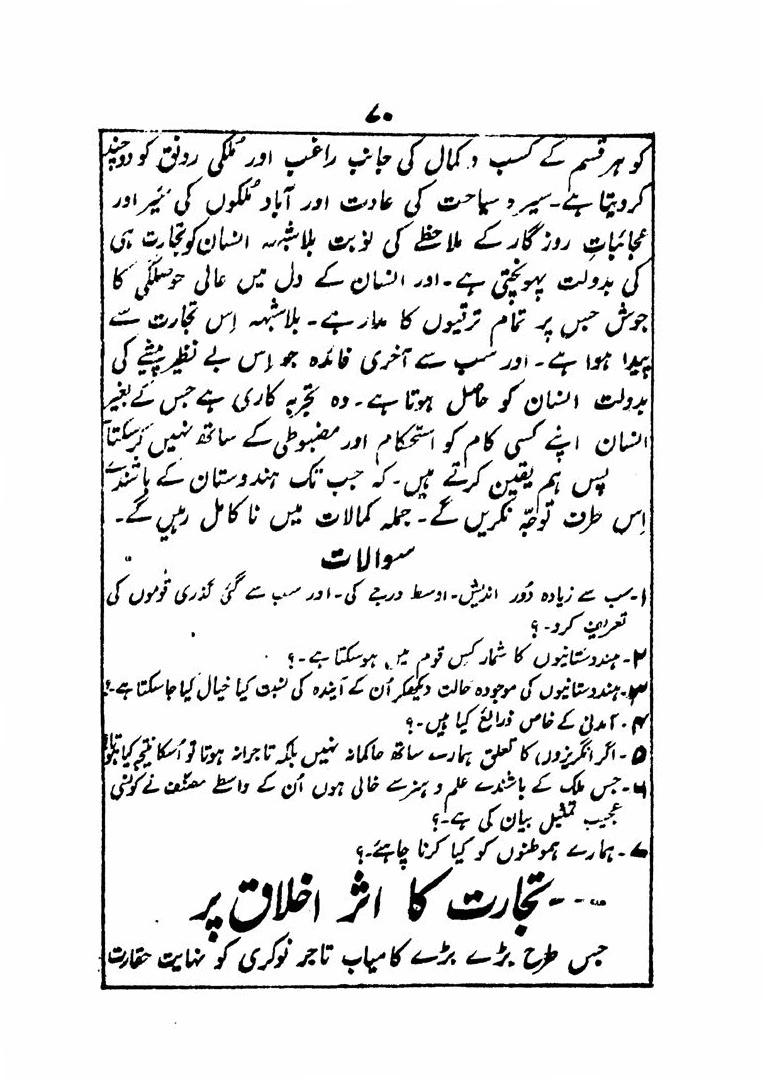 ۷۰
کو ہر قسم کے کسب و کمال کی جانب راغب اور ملکی رونق کو دوچند
کردیتا ہے۔ سیر و سیاحت کی عادت اور آباد ملکوں کی سَیر اور
عجائباتِ روزگار کے ملاحظے کی نوبت بلاشبہہ انسان کو تجارت ہی
کی بدولت پہونچتی ہے۔ اور انسان کے دل میں عالی حوصلگی کا
جوش جس پر تمام ترقیوں کا مدار ہے۔ بلاشبہہ اِس تجارت سے
پیدا ہوا ہے۔ اور سب سے آخری فائدہ جو اِس بے نظیر پیشے کی
بدولت انسان کو حاصل ہوتا ہے۔ وہ تجربہ کاری ہے جس کے بغیر
انسان اپنے کسی کام کو استحکام اور مضبوطی کے ساتھ نہیں کرسکتا
پس ہم یقین کرتے ہیں۔ کہ جب تک ہندوستان کے باشندے
اِس طرف توجّہ نکریں گے۔ جملہ کمالات میں نا کامل رہیں گے۔
سوالات
۱۔ سب سے زیادہ دُور اندیش۔ اوسط درجے کی۔ اور سب سے گئی گذری قوموں کی
تعریف کرو۔؟
۲۔ ہندوستانیوں کا شمار کس قوم میں ہوسکتا ہے۔؟
۳۔ ہندوستانیوں کی موجودہ حالت دیکھکر اُن کے آیندہ کی نسبت کیا خیال کیا جاسکتا ہے؟
۴۔ آمدنی کے خاص ذرائع کیا ہیں۔؟
۵۔ اگر انگریزوں کا تعلق ہمارے ساتھ حاکمانہ نہیں بلکہ تاجرانہ ہوتا تو اُسکا نتیجہ کیا
۶۔ جس ملک کے باشندے علم و ہنر سے خالی ہوں اُن کے واسطے مصنّف نے کونسی
عجیب تمثیل بیان کی ہے۔؟
۷۔ ہمارے ہموطنوں کو کیا کرنا چاہئے۔؟
تجارت کا اثر اخلاق پر
جس طرح بڑے بڑے کامیاب تاجر نوکری کو نہایت حقارت